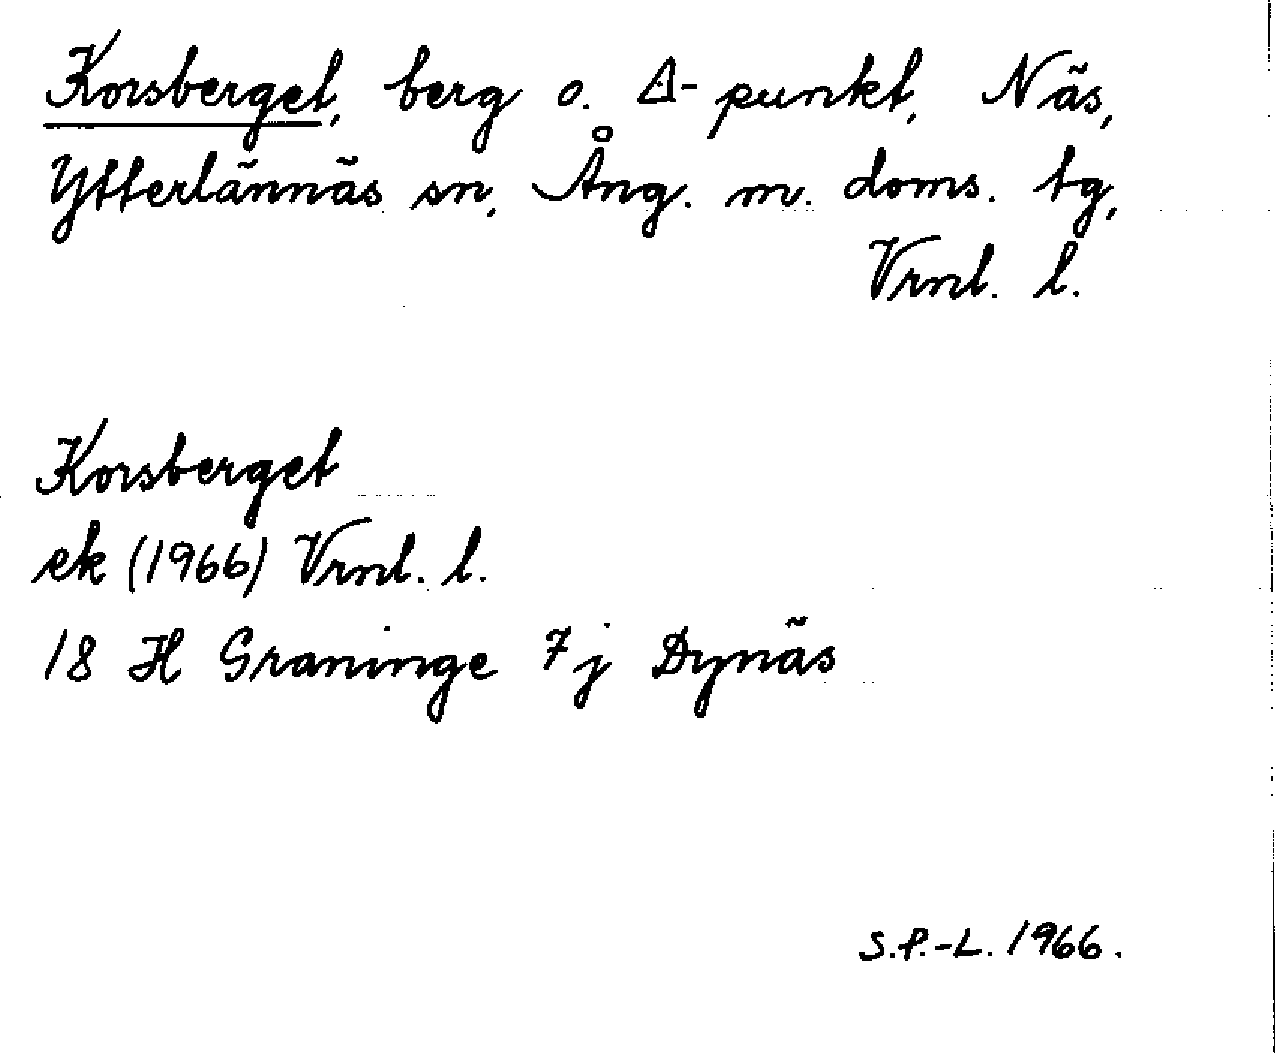 Korsberget, berg o. Δ-punkt, Näs,
Ytterlännäs sn, Ång. m. doms. tg,
Vrnl. l.
Korsberget
ek (1966) Vrnl. l.
18 H Graninge 7j Dynäs
S.P.-L. 1966.